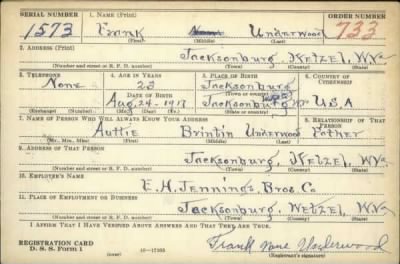 SERIAL NUMBER 1. NAME (Print) ORDER NUMBER
1573 Frank None Underwood 733
(First) (Middle) (Last)
2. ADDRESS (Print)
Jacksonburg, Wetzel, W.Va
(Number and street or R. F. D. number) (Town) (County) (State)
3. TELEPHONE 4. AGE IN YEARS 5. PLACE OF BIRTH 6. COUNTRY OF CITIZENSHIP
None 23 Jacksonburg
DATE OF BIRTH (Town or county)
Aug. 24-1917 Jacksonburg U.S.A
(Exchange) (Number) (Mo.) (Day) (Yr.) (State or country)
7. NAME OF PERSON WHO WILL ALWAYS KNOW YOUR ADDRESS 8. RELATIONSHIP OF THAT PERSON
Auttie Brintin Underwood Father
(Mr., Mrs., Miss) (First) (Middle) (Last)
9. ADDRESS OF THAT PERSON
Jacksonburg, Wetzel, W.Va
(Number and street or R. F. D. number) (Town) (County) (State)
10. EMPLOYER'S NAME
E.H. Jennings. Bros. Co
11. PLACE OF EMPLOYMENT OR BUSINESS
Jacksonburg, Wetzel, W.Va
(Number and street or R. F. D. number) (Town) (County) (State)
I AFFIRM THAT I HAVE VERIFIED ABOVE ANSWERS AND THAT THEY ARE TRUE.
REGISTRATION CARD
D. S. S. Form 1 (over) 16—17105 Frank None Underwood
(Registrant's signature)